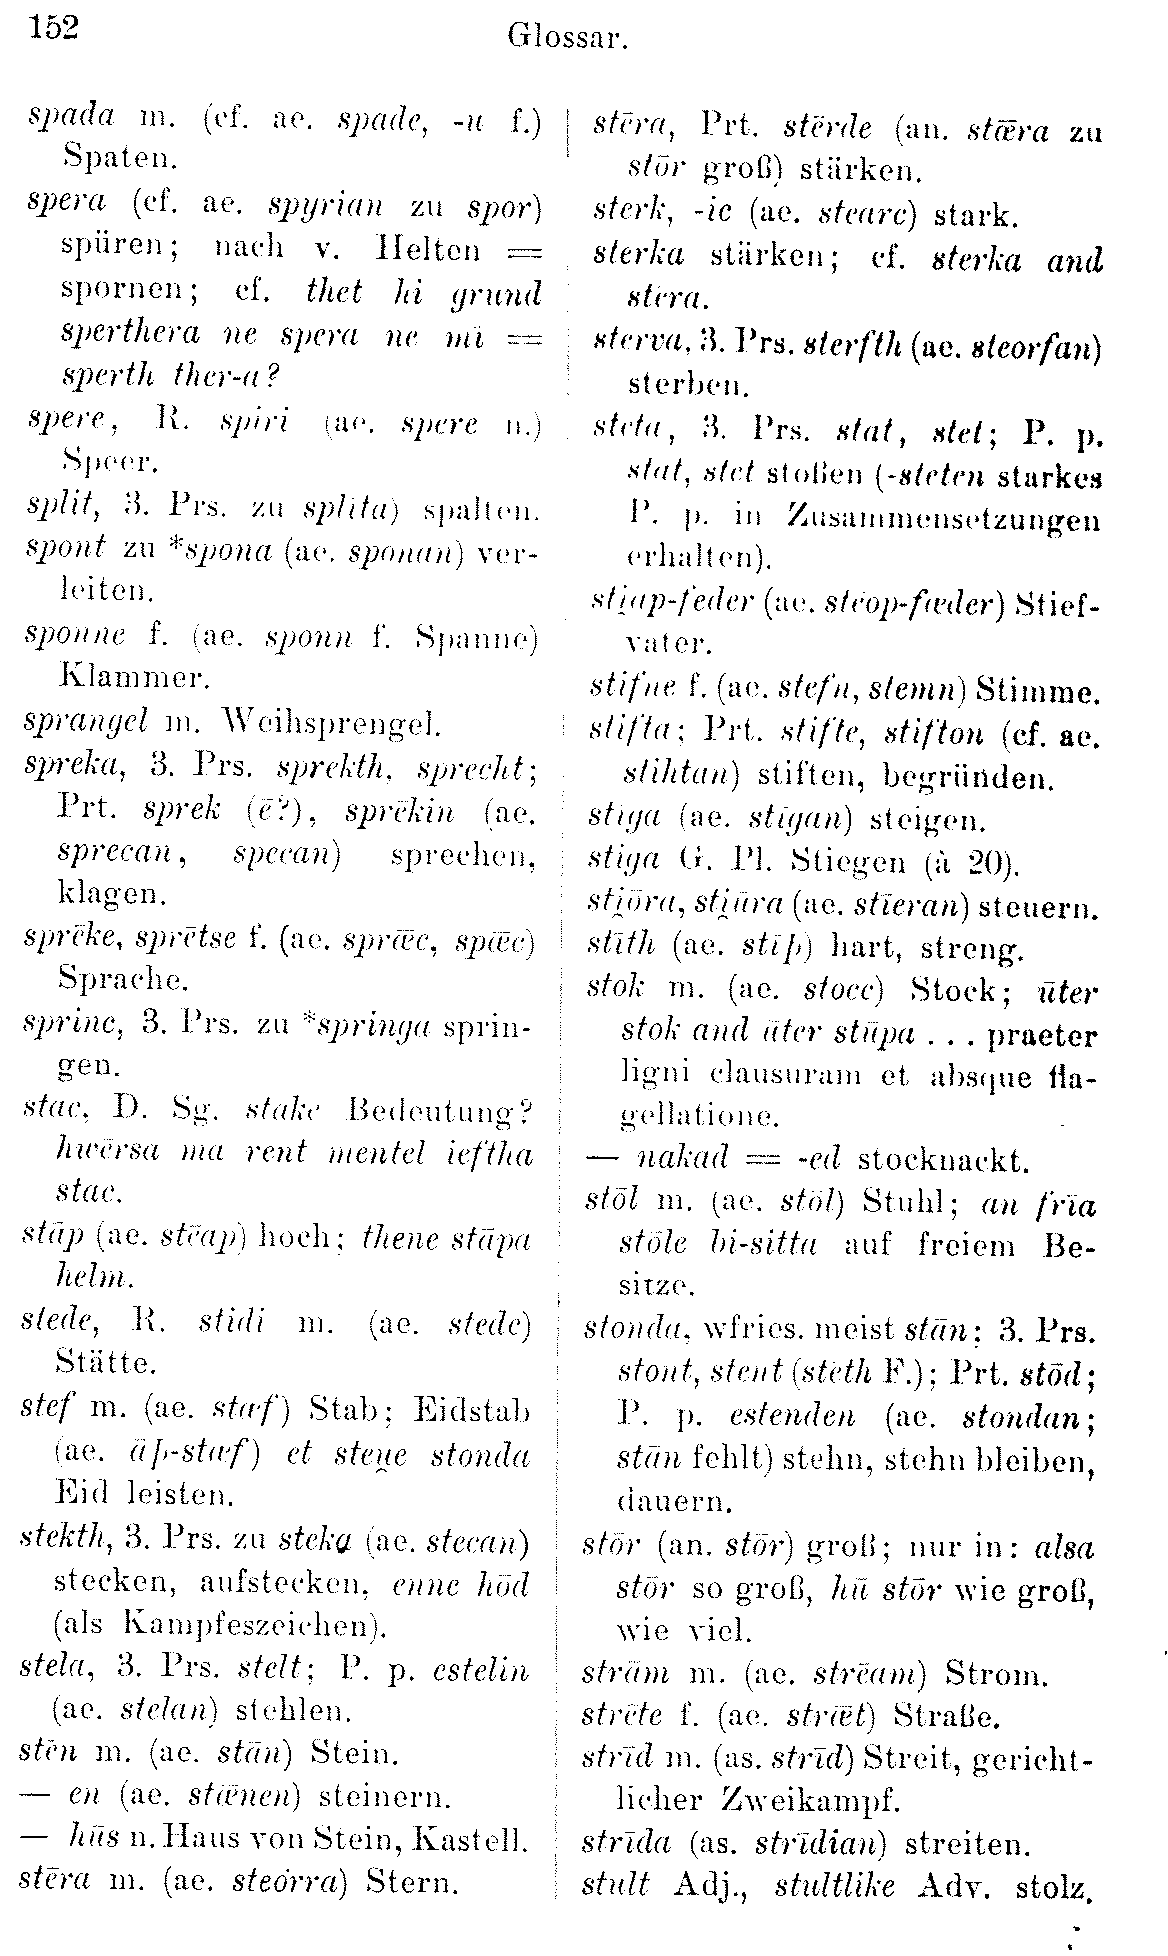 152
Glossar.
spada m. (cf. ae. spade, -u f.)
Spaten.
spera (cf. ae. spyrian zu spor)
spüren; nach v. Helten =
spornen; cf. thet hi grund
sperthera ne spera ne mi =
sperth ther-a?
spere, R. spiri (ae. spere n.)
Speer.
split, 3. Prs. zu splita) spalten.
spont zu *spona (ae. sponan) ver-
leiten.
sponne f. (ae. sponn f. Spanne)
Klammer.
sprangel m. Weihsprengel.
spreka, 3. Prs. sprekth, sprecht;
Prt. sprek (ē?), sprēkin (ae.
sprecan, specan) sprechen,
klagen.
sprēke, sprētse f. (ae. sprǣc, spǣc)
Sprache.
sprinc, 3. Prs. zu *springa sprin-
gen.
stac, D. Sg. stake Bedeutung?
hwērsa ma rent mentel ieftha
stac.
stāp (ae. stēap) hoch; thene stāpa
helm.
stede, R. stidi m. (ae. stede)
Stätte.
stef m. (ae. stæf) Stab; Eidstab
(ae. āþ-stæf) et steu̯e stonda
Eid leisten.
stekth, 3. Prs. zu steka (ae. stecan)
stecken, aufstecken, enne hōd
(als Kampfeszeichen).
stela, 3. Prs. stelt; P. p. estelin
(ae. stelan) stehlen.
stēn m. (ae. stān) Stein.
— en (ae. stǣnen) steinern.
— hūs n. Haus von Stein, Kastell.
stēra m. (ae. steorra) Stern.
stēra, Prt. stērde (an. stǣra zu
stōr groß) stärken.
sterk, -ic (ae. stearc) stark.
sterka stärken; cf. sterka and
stēra.
sterva, 3. Prs. sterfth (ae. steorfan)
sterben.
steta, 3. Prs. stat, stet; P. p.
stat, stet stoßen (-steten starkes
P. p. in Zusammensetzungen
erhalten).
sti̯ap-feder (ae. stēop-fæder) Stief-
vater.
stifne f. (ae. stefn, stemn) Stimme.
stifta; Prt. stifte, stifton (cf. ae.
stihtan) stiften, begründen.
stīga (ae. stīgan) steigen.
stiga G. Pl. Stiegen (à 20).
sti̯ōra, sti̯ūra (ae. stīeran) steuern.
stīth (ae. stīþ) hart, streng.
stok m. (ae. stocc) Stock; ūter
stok and ūter stūpa . . . praeter
ligni clausuram et absque fla-
gellatione.
— nakad = -ed stocknackt.
stōl m. (ae. stōl) Stuhl; an fria
stōle bi-sitta auf freiem Be-
sitze.
stonda, wfries. meist stān; 3. Prs.
stont, stent (steth F.); Prt. stōd;
P. p. estenden (ae. stondan;
stān fehlt) stehn, stehn bleiben,
dauern.
stōr (an. stōr) groß; nur in: alsa
stōr so groß, hū stōr wie groß,
wie viel.
strām m. (ae. strēam) Strom.
strēte f. (ae. strǣt) Straße.
strīd m. (as. strīd) Streit, gericht-
licher Zweikampf.
strīda (as. strīdian) streiten.
stult Adj., stultlike Adv. stolz.